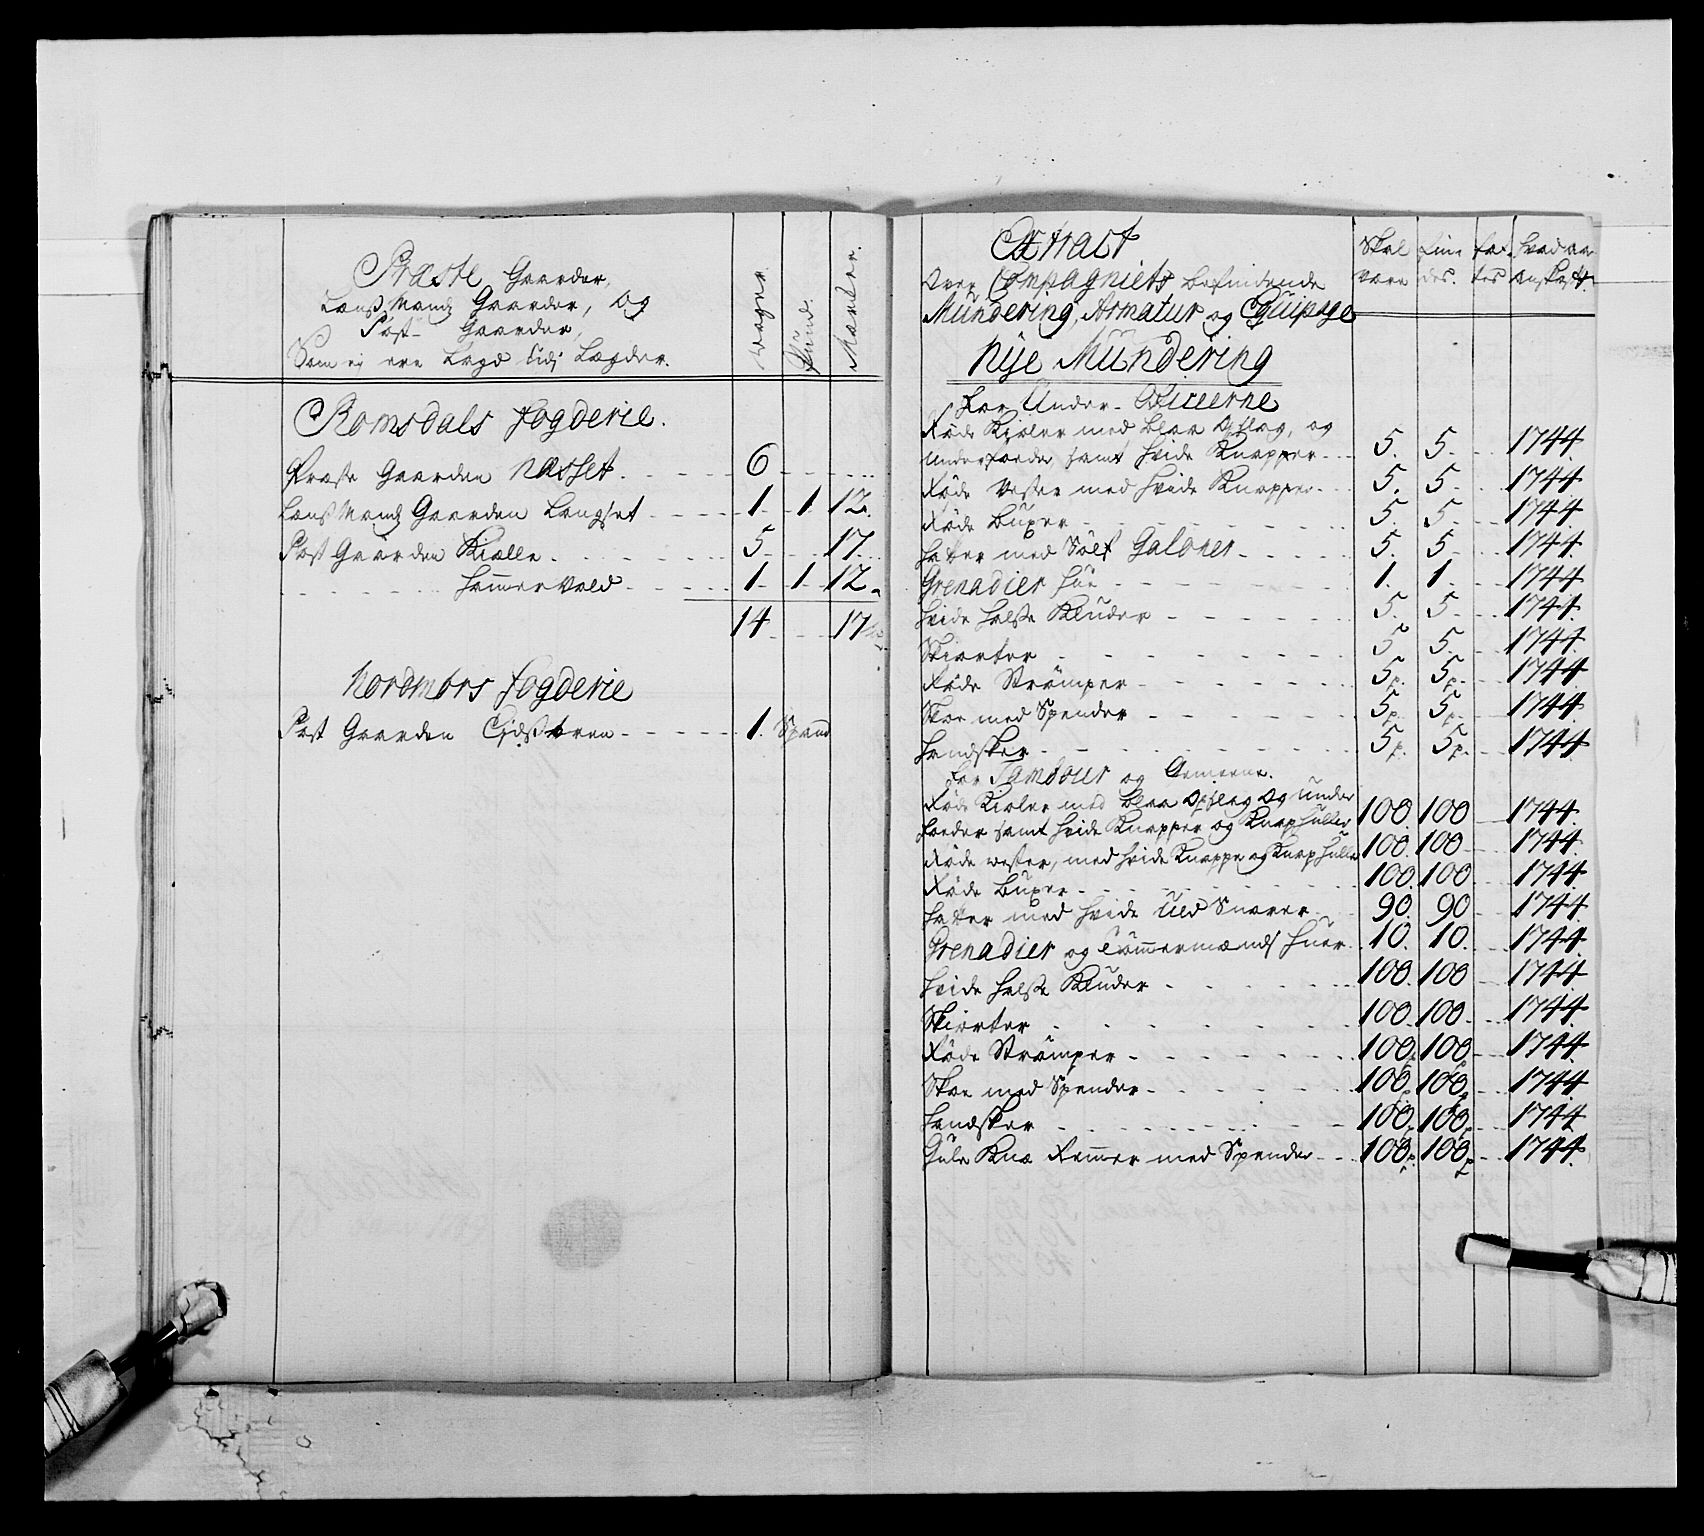 Præste Gaarder,
Lensmands Gaarder, og
Post- Gaarder,
Som ej ere lagd udj Lægder.
Woger
Pund.
Marker.
Romsdals Fogderie.
Præste Gaarden Nasset. 6
Lensmands Gaarden Langset 1 1 12.
Post Gaarden Kiølle 5 17.
Hammervold 1 1 12.
14 17
Nordmørs Fogderie
Post Gaarden Eidsøren 1. Spand
Extract
Over Compagniets befindende
Mundering, Armatur og Equipage
Skal være
Fin des.
Fat tes
Hvad aar anskaffet
Nye Mundering
For Under-Officerne
Røde Kioler med blaa Opslag, og
underfoeder, samt hvide Knapper 5. 5. 1744.
Røde Vester med hvide Knapper 5. 5. 1744
Røde Buxer 5. 5. 1744
Hatter med Sølf Galoner 5. 5. 1744.
Grenadier Hue 1. 1. 1744
hvide Halse Kluder 5. 5. 1744.
Skiorter 5 5. 1744.
Røde Strømper 5p. 5p. 1744
Skoe med Spender 5p. 5p. 1744
Handsker 5p. 5p. 1744
For Tambour og Gemeene.
Røde Kioler med blaa Opslag og under
foeder samt hvide Knapper og Knaphuller 100. 100 1744.
Røde vester, med hvide Knapper og Knaphuller 100. 100 1744.
Røde Buxer 100. 100 1744.
Hatter med hvide Uld Snorer 90. 90 1744
Grenadier og Tømmermænds Huer 10. 10. 1744
hvide Halse Kluder 100. 100 1744
Skiorter 100. 100 1744
Røde Strømper 100p. 100p 1744
Skoe med Spender 100p. 100p 1744
Handsker 100p. 100p 1744
Gule Knæ Remmer med Spender 100p. 100p 1744.